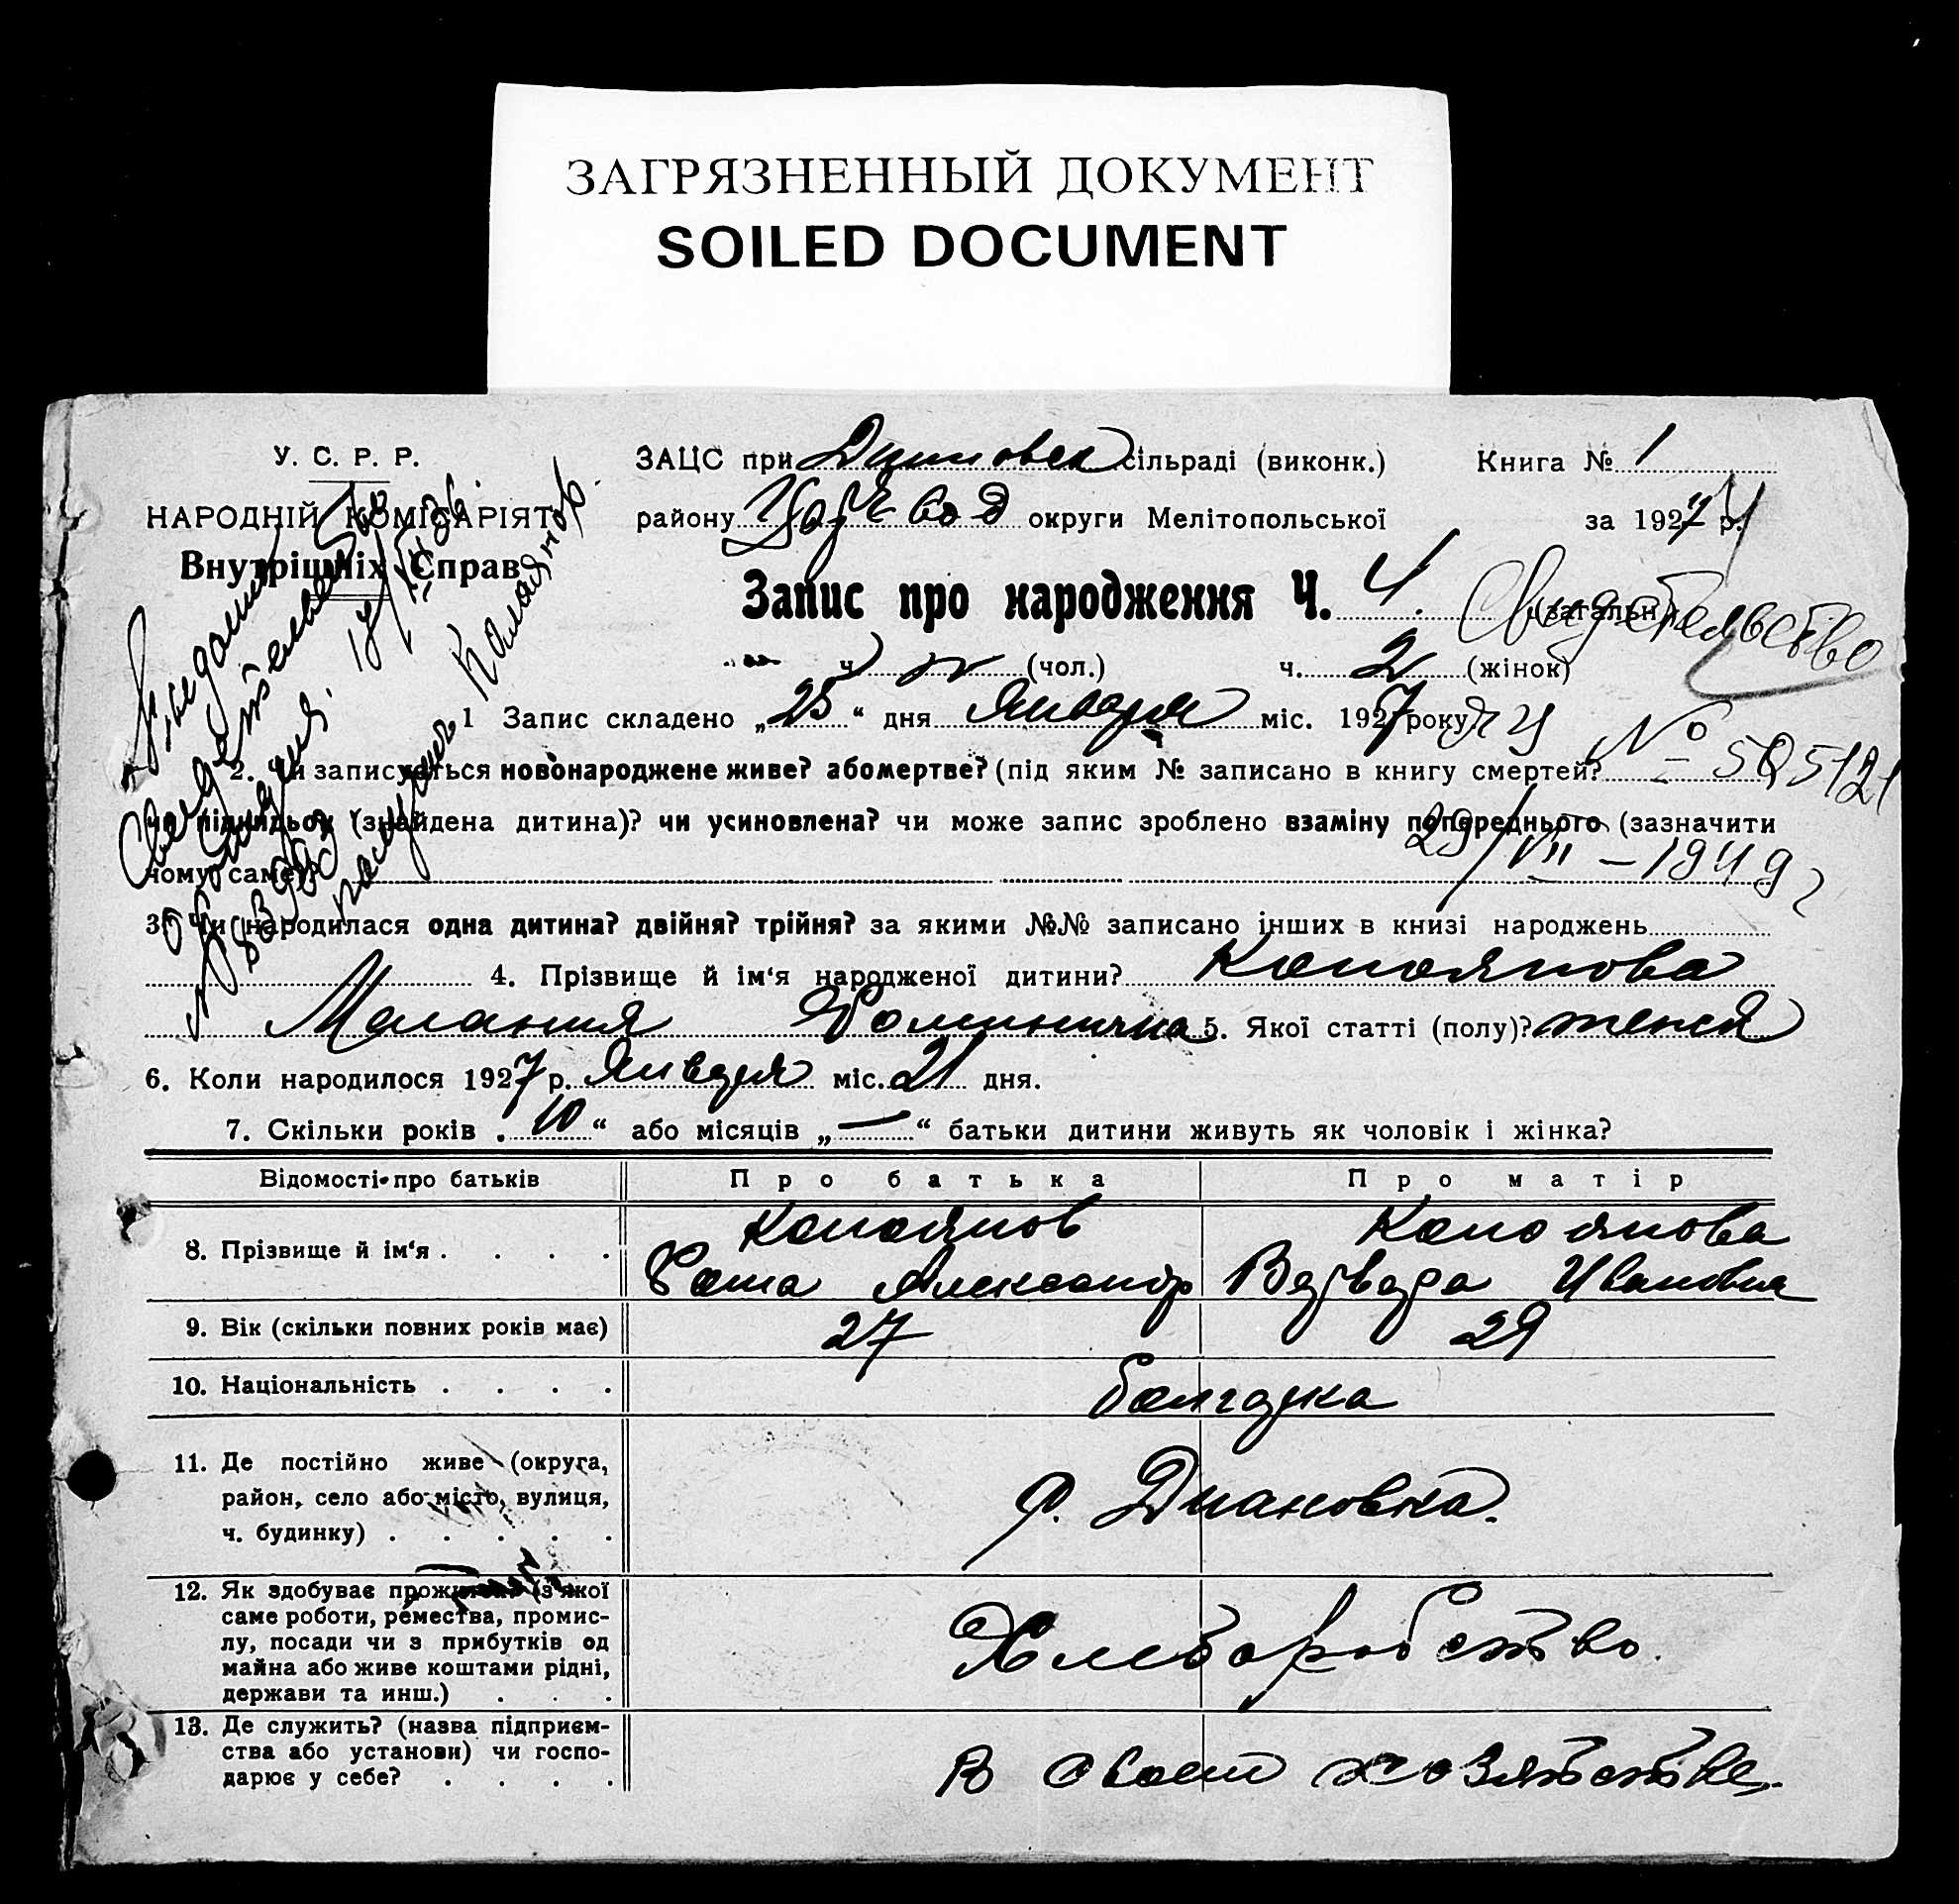 ЗАГРЯЗНЕННЫЙ ДОКУМЕНТ
SOILED DOCUMENT
У. С. Р. Р.
НАРОДНІЙ КОМІСАРІЯТ
Внутрішніх Справ
ЗАЦС при сільраді (виконк.) Книга № 1
району округи Мелітопольської за 1927 р.
Запис про народження Ч. 4. (загальн.)
Свидетельство
ч. (чол.) ч. 2 (жінок)
1 Запис складено „25“ дня Января міс. 1927 року
№ 505121
2. Чи записується новонароджене живе? або мертве? (під яким № записано в книгу смертей?
чи підкидьок (знайдена дитина)? чи усиновлена? чи може запис зроблено взаміну попереднього (зазначити
29/VII – 1949 г
чому саме)
3. Чи народилася одна дитина? двійня? трійня? за якими №№ записано інших в книзі народжень
4. Прізвище й ім‘я народженої дитини? Капоянова
Малания 5. Якої статті (полу)?
6. Коли народилося 1927 р. Января міс. 21 дня.
7. Скільки років „10“ або місяців „—“ батьки дитини живуть як чоловік і жінка?
Відомості про батьків Про батька Про матір
8. Прізвище й ім‘я . . . . Капоянов Капоянова
Александр Варвара Ивановна
9. Вік (скільки повних років має) 27 29
10. Національність . . . .
11. Де постійно живе (округа,
район, село або місто, вулиця,
ч. будинку) . . . . .
Диановка.
12. Як здобуває прожиток? (з якої
саме роботи, ремества, промис-
лу, посади чи з прибутків од
майна або живе коштами рідні,
держави та инш.) . . .
Хлеборобство.
13. Де служить? (назва підприєм-
ства або установи) чи госпо-
дарює у себе? . . . .
В своем хозяйстве.